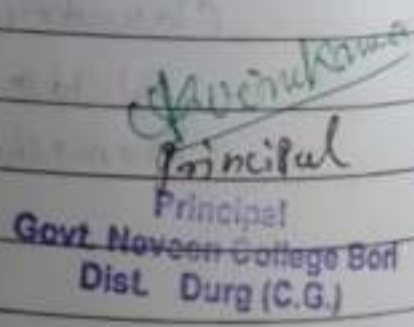 Principal
Principal
Govt. Naveen College Bori
Dist. Durg (C.G.)